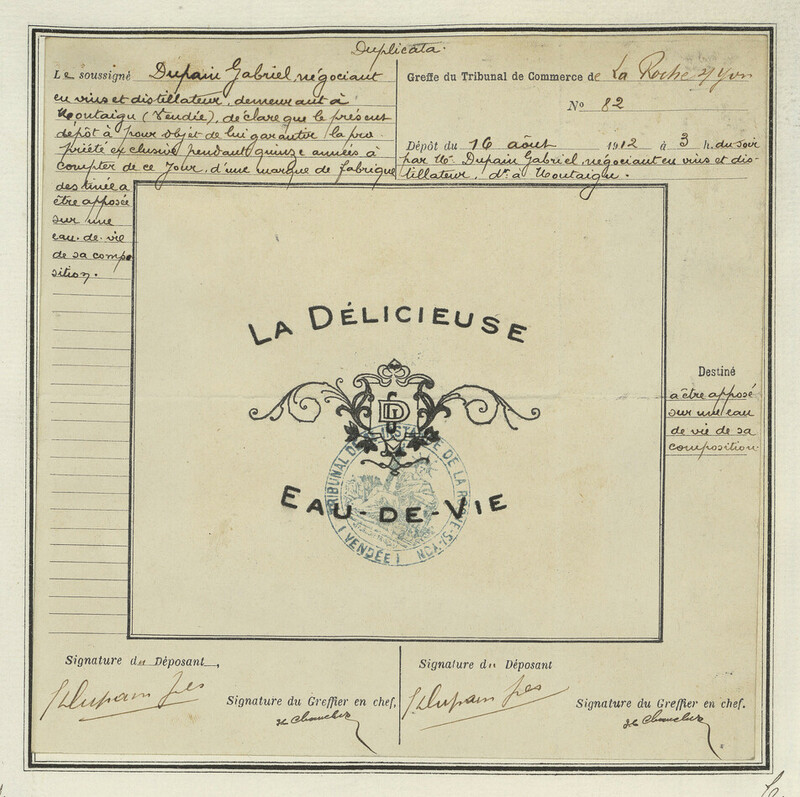 Duplicata.
Le soussigné Dupain Gabriel, négociant
en vins et distillateur, demeurant à
Montaigu (Vendée), déclare que le présent
dépôt à pour objet de lui garantir la pro
priété exclusive pendant quinze années à
compter de ce jour, d'une marque de fabrique
destinée a
être apposée
sur une
eau-de-vie
de sa compo
sition.
Greffe du Tribunal de Commerce de La Roche s/ Yon
No 82
Dépôt du 16 août 1912 à 3 h. du soir
par Mr Dupain Gabriel, négociant en vins et dis-
tillateur, dt à Montaigu.
LA DÉLICIEUSE
EAU-DE-VIE
TRIBUNAL DE DE LA ROCHE-SUR-YON
(VENDÉE)
Destiné
a être apposé
sur une eau
de vie de sa
composition.
Signature du Déposant,
G Dupain
Signature du Greffier en chef,
Signature du Déposant
G Dupain
Signature du Greffier en chef.